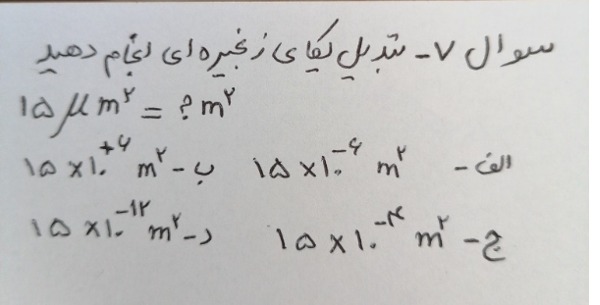 سوال ۷- تبدیل یکای زنجیره ای انجام دهید
۱۵ μm² = ? m²
الف- ۱۵ × ۱۰⁻⁶ m² ب- ۱۵ × ۱۰⁺⁶ m²
ج- ۱۵ × ۱۰⁻³ m² د- ۱۵ × ۱۰⁻¹² m²